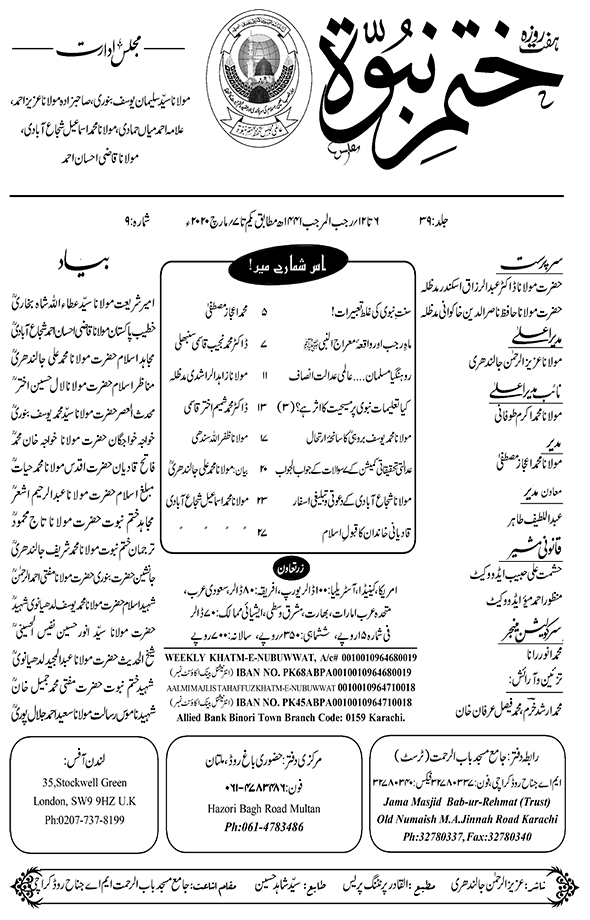 ہفت روزہ
ختم نبوّۃ
مجلس ادارت
مولانا سیّد سلیمان یوسف بنوری، صاحبزادہ مولانا عزیز احمد،
علامہ احمد میاں حمادی، مولانا محمد اسماعیل شجاع آبادی،
مولانا قاضی احسان احمد
جلد: ۳۹
۶ تا ۱۲/ رجب المرجب ۱۴۴۱ھ مطابق یکم تا ۷/ مارچ ۲۰۲۰ء
شمارہ: ۹
سرپرست
حضرت مولانا ڈاکٹر عبدالرزاق اسکندر مدظلہ
حضرت مولانا حافظ ناصر الدین خاکوانی مدظلہ
مدیر اعلیٰ
مولانا عزیز الرحمٰن جالندھری
نائب مدیر اعلیٰ
مولانا محمد اکرم طوفانی
مدیر
مولانا محمد اعجاز مصطفیٰ
معاون مدیر
عبداللطیف طاہر
قانونی مشیر
حشمت علی حبیب ایڈووکیٹ
منظور احمد میؤ ایڈووکیٹ
سرکولیشن منیجر
محمد انور رانا
تزئین و آرائش:
محمد ارشد خرم، محمد فیصل عرفان خان
اس شمارے میں!
سنت نبوی کی غلط تعبیرات! ۵ محمد اعجاز مصطفیٰ
ماہِ رجب اور واقعۂ معراج النبی ﷺ ۷ ڈاکٹر محمد نجیب قاسمی سنبھلی
روہنگیا مسلمان.... عالمی عدالت انصاف ۱۱ مولانا زاہد الراشدی مدظلہ
کیا تعلیمات نبوی پر مسیحیت کا اثر ہے؟ (۳) ۱۳ ڈاکٹر محمد شمیم اختر قاسمی
مولانا محمد یوسف بروہیؒ کا سانحۂ ارتحال ۱۷ مولانا ظفر اللہ سندھی
عدالتی تحقیقاتی کمیشن کے ۷ سوالات کے جواب الجواب ۲۰ بیان: مولانا محمد علی جالندھریؒ
مولانا شجاع آبادی کے دعوتی و تبلیغی اسفار ۲۳ مولانا محمد اسماعیل شجاع آبادی
قادیانی خاندان کا قبولِ اسلام ۲۷ " " " "
زرِتعاون
امریکا، کینیڈا، آسٹریلیا: ۱۰۰ ڈالر یورپ، افریقہ: ۸۰ ڈالر، سعودی عرب،
متحدہ عرب امارات، بھارت، مشرق وسطیٰ، ایشیائی ممالک: ۷۰ ڈالر
فی شمارہ ۱۵ روپے، ششماہی: ۳۵۰ روپے، سالانہ: ۷۰۰ روپے
WEEKLY KHATM-E-NUBUWWAT, A/c# 0010010964680019
IBAN NO. PK68ABPA0010010964680019 (انٹرنیشنل بینک اکاؤنٹ نمبر)
AALMIMAJLISTAHAFFUZKHATM-E-NUBUWWAT 0010010964710018
IBAN NO. PK45ABPA0010010964710018 (انٹرنیشنل بینک اکاؤنٹ نمبر)
Allied Bank Binori Town Branch Code: 0159 Karachi.
بیاد
امیر شریعت مولانا سیّد عطاء اللہ شاہ بخاریؒ
خطیب پاکستان مولانا قاضی احسان احمد شجاع آبادیؒ
مجاہد اسلام حضرت مولانا محمد علی جالندھریؒ
مناظر اسلام حضرت مولانا لال حسین اخترؒ
محدث العصر حضرت مولانا سیّد محمد یوسف بنوریؒ
خواجہ خواجگان حضرت مولانا خواجہ خان محمدؒ
فاتح قادیان حضرت اقدس مولانا محمد حیاتؒ
مبلغ اسلام حضرت مولانا عبدالرحیم اشعرؒ
مجاہد ختم نبوت حضرت مولانا تاج محمودؒ
ترجمان ختم نبوت حضرت مولانا محمد شریف جالندھریؒ
جانشین حضرت بنوری حضرت مولانا مفتی احمد الرحمنؒ
شہید اسلام حضرت مولانا محمد یوسف لدھیانوی شہیدؒ
حضرت مولانا سیّد انور حسین نفیس الحسینیؒ
شیخ الحدیث حضرت مولانا عبدالمجید لدھیانویؒ
شہید ختم نبوت حضرت مفتی محمد جمیل خانؒ
شہید ناموسِ رسالت مولانا سعید احمد جلال پوریؒ
رابطہ دفتر: جامع مسجد باب الرحمت (ٹرسٹ)
ایم اے جناح روڈ کراچی، فون: ۳۲۷۸۰۳۳۷ فیکس: ۳۲۷۸۰۳۴۰
Jama Masjid Bab-ur-Rehmat (Trust)
Old Numaish M.A.Jinnah Road Karachi
Ph:32780337, Fax:32780340
مرکزی دفتر: حضوری باغ روڈ، ملتان
فون: ۰۶۱-۴۷۸۳۴۸۶
Hazori Bagh Road Multan
Ph:061-4783486
لندن آفس:
35,Stockwell Green
London, SW9 9HZ U.K
Ph:0207-737-8199
ناشر: عزیز الرحمٰن جالندھری مطبع: القادر پرنٹنگ پریس طابع: سیّد شاہد حسین مقام اشاعت: جامع مسجد باب الرحمت ایم اے جناح روڈ کراچی